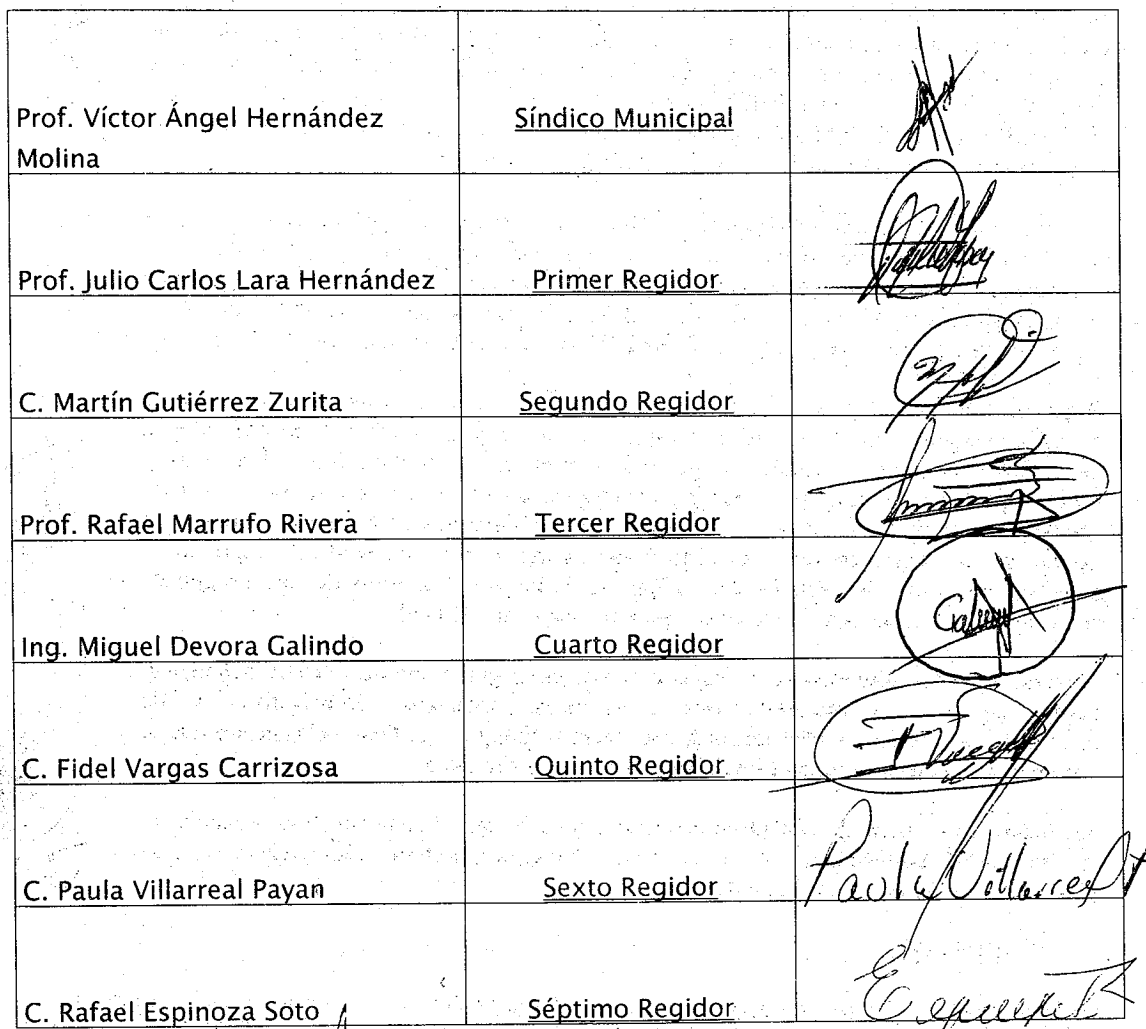 Prof. Víctor Ángel Hernández
Molina
Síndico Municipal
Prof. Julio Carlos Lara Hernández
Primer Regidor
C. Martín Gutiérrez Zurita
Segundo Regidor
Prof. Rafael Marrufo Rivera
Tercer Regidor
Ing. Miguel Devora Galindo
Cuarto Regidor
C. Fidel Vargas Carrizosa
Quinto Regidor
C. Paula Villarreal Payan
Sexto Regidor
Paola Villarreal
C. Rafael Espinoza Soto
Séptimo Regidor